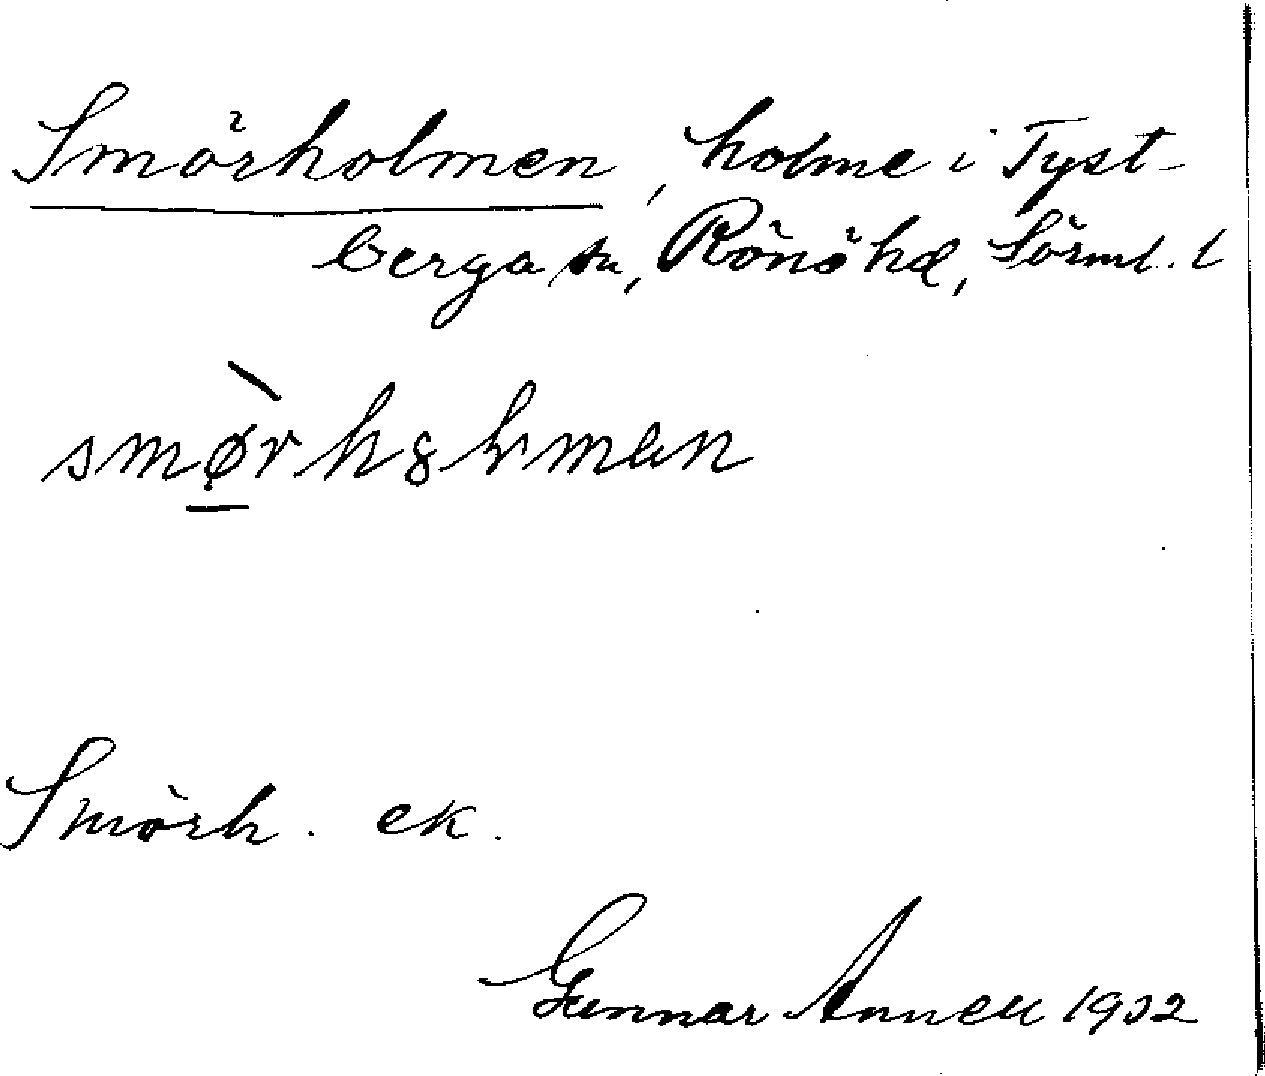 Smörholmen, holme i Tyst-
berga sn, Rönö hd, Sörml. l
smørhȣlmen
Smörh. ek.
Gunnar Annell 1932